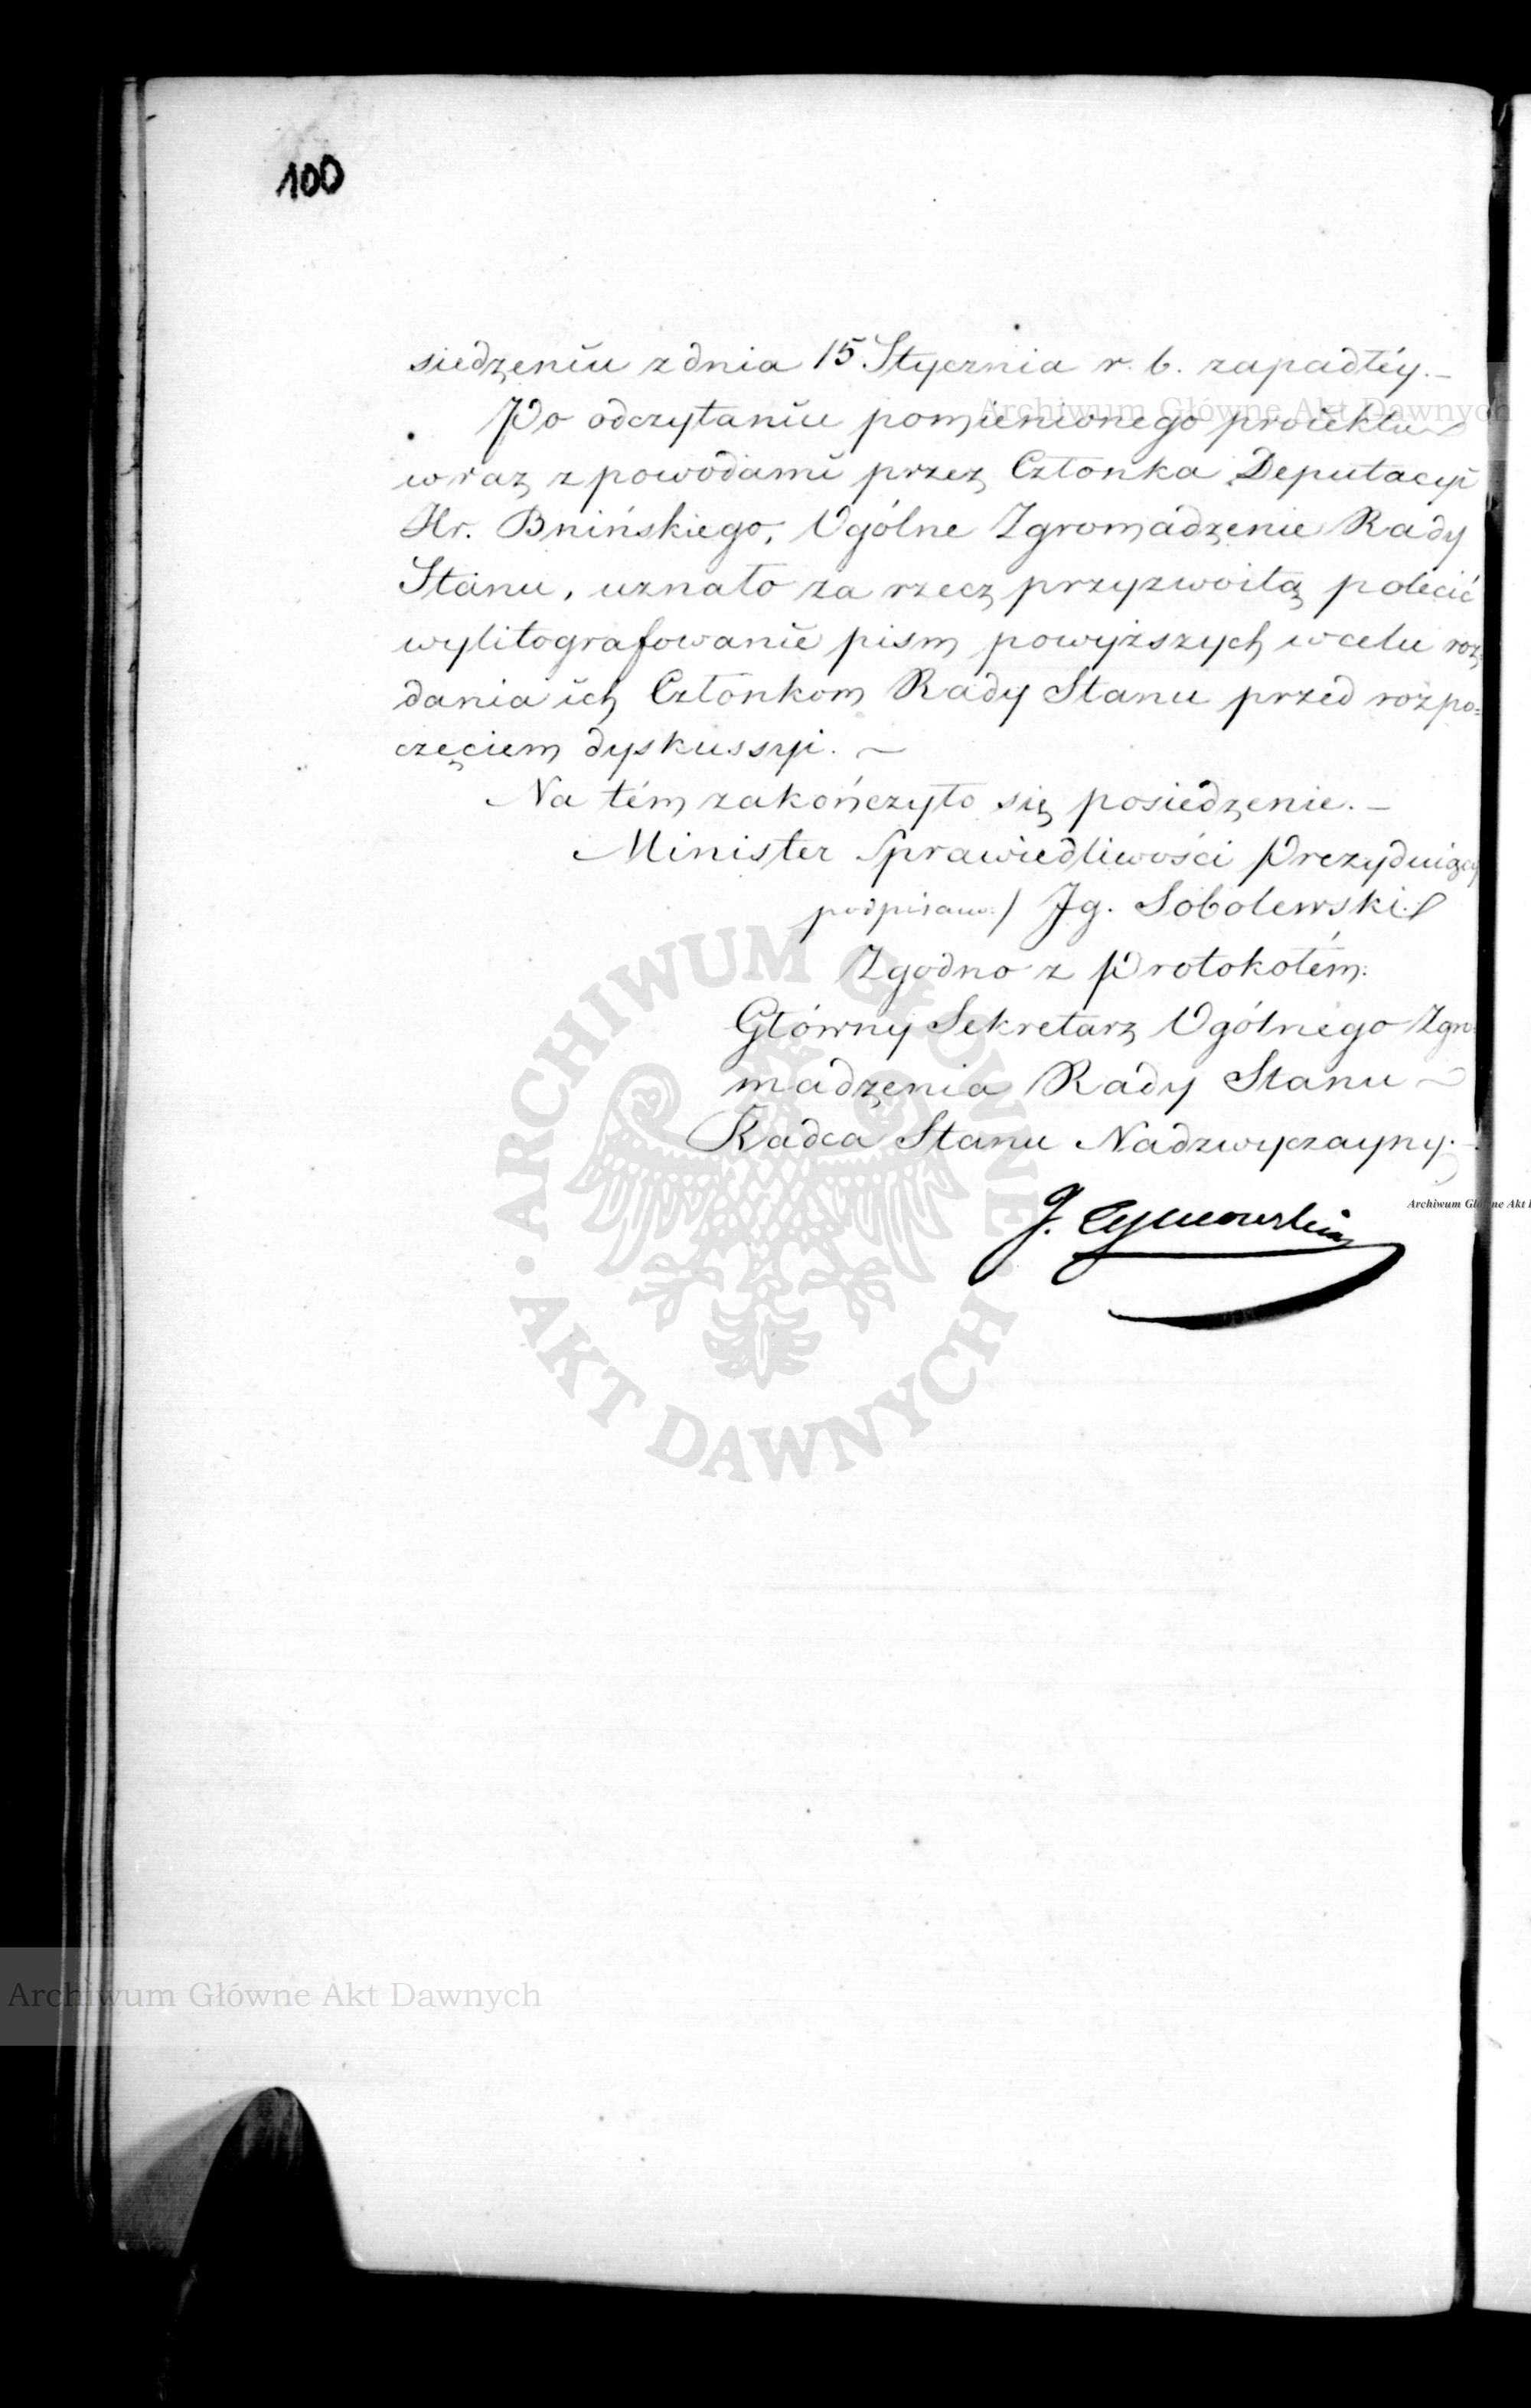 100
siedzeniu z dnia 15 Stycznia r. b. zapadłéy. –
Po odczytaniu pomienionego proiektu
wraz z powodami przez Członka Deputacyi
Hr. Bnińskiego, Ogólne Zgromadzenie Rady
Stanu, uznało za rzecz przyzwoitą polecić
wylitografowanie pism powyższych w celu roz=
dania ich Członkom Rady Stanu przed rozpo=
częciem dyskussyi. –
Na tém zakończyło się posiedzenie. –
Minister Sprawiedliwości Prezyduiący
podpisano:/ Jg. Sobolewski.
Zgodno z Protokołem:
Główny Sekretarz Ogólnego Zgro=
madzenia Rady Stanu –
Radca Stanu Nadzwyczayny. –
J. Tymowski
Archiwum Główne Akt Dawnych
ARCHIWUM GŁÓWNE • AKT DAWNYCH •
Archiwum Główne Akt
Archiwum Główne Akt Dawnych